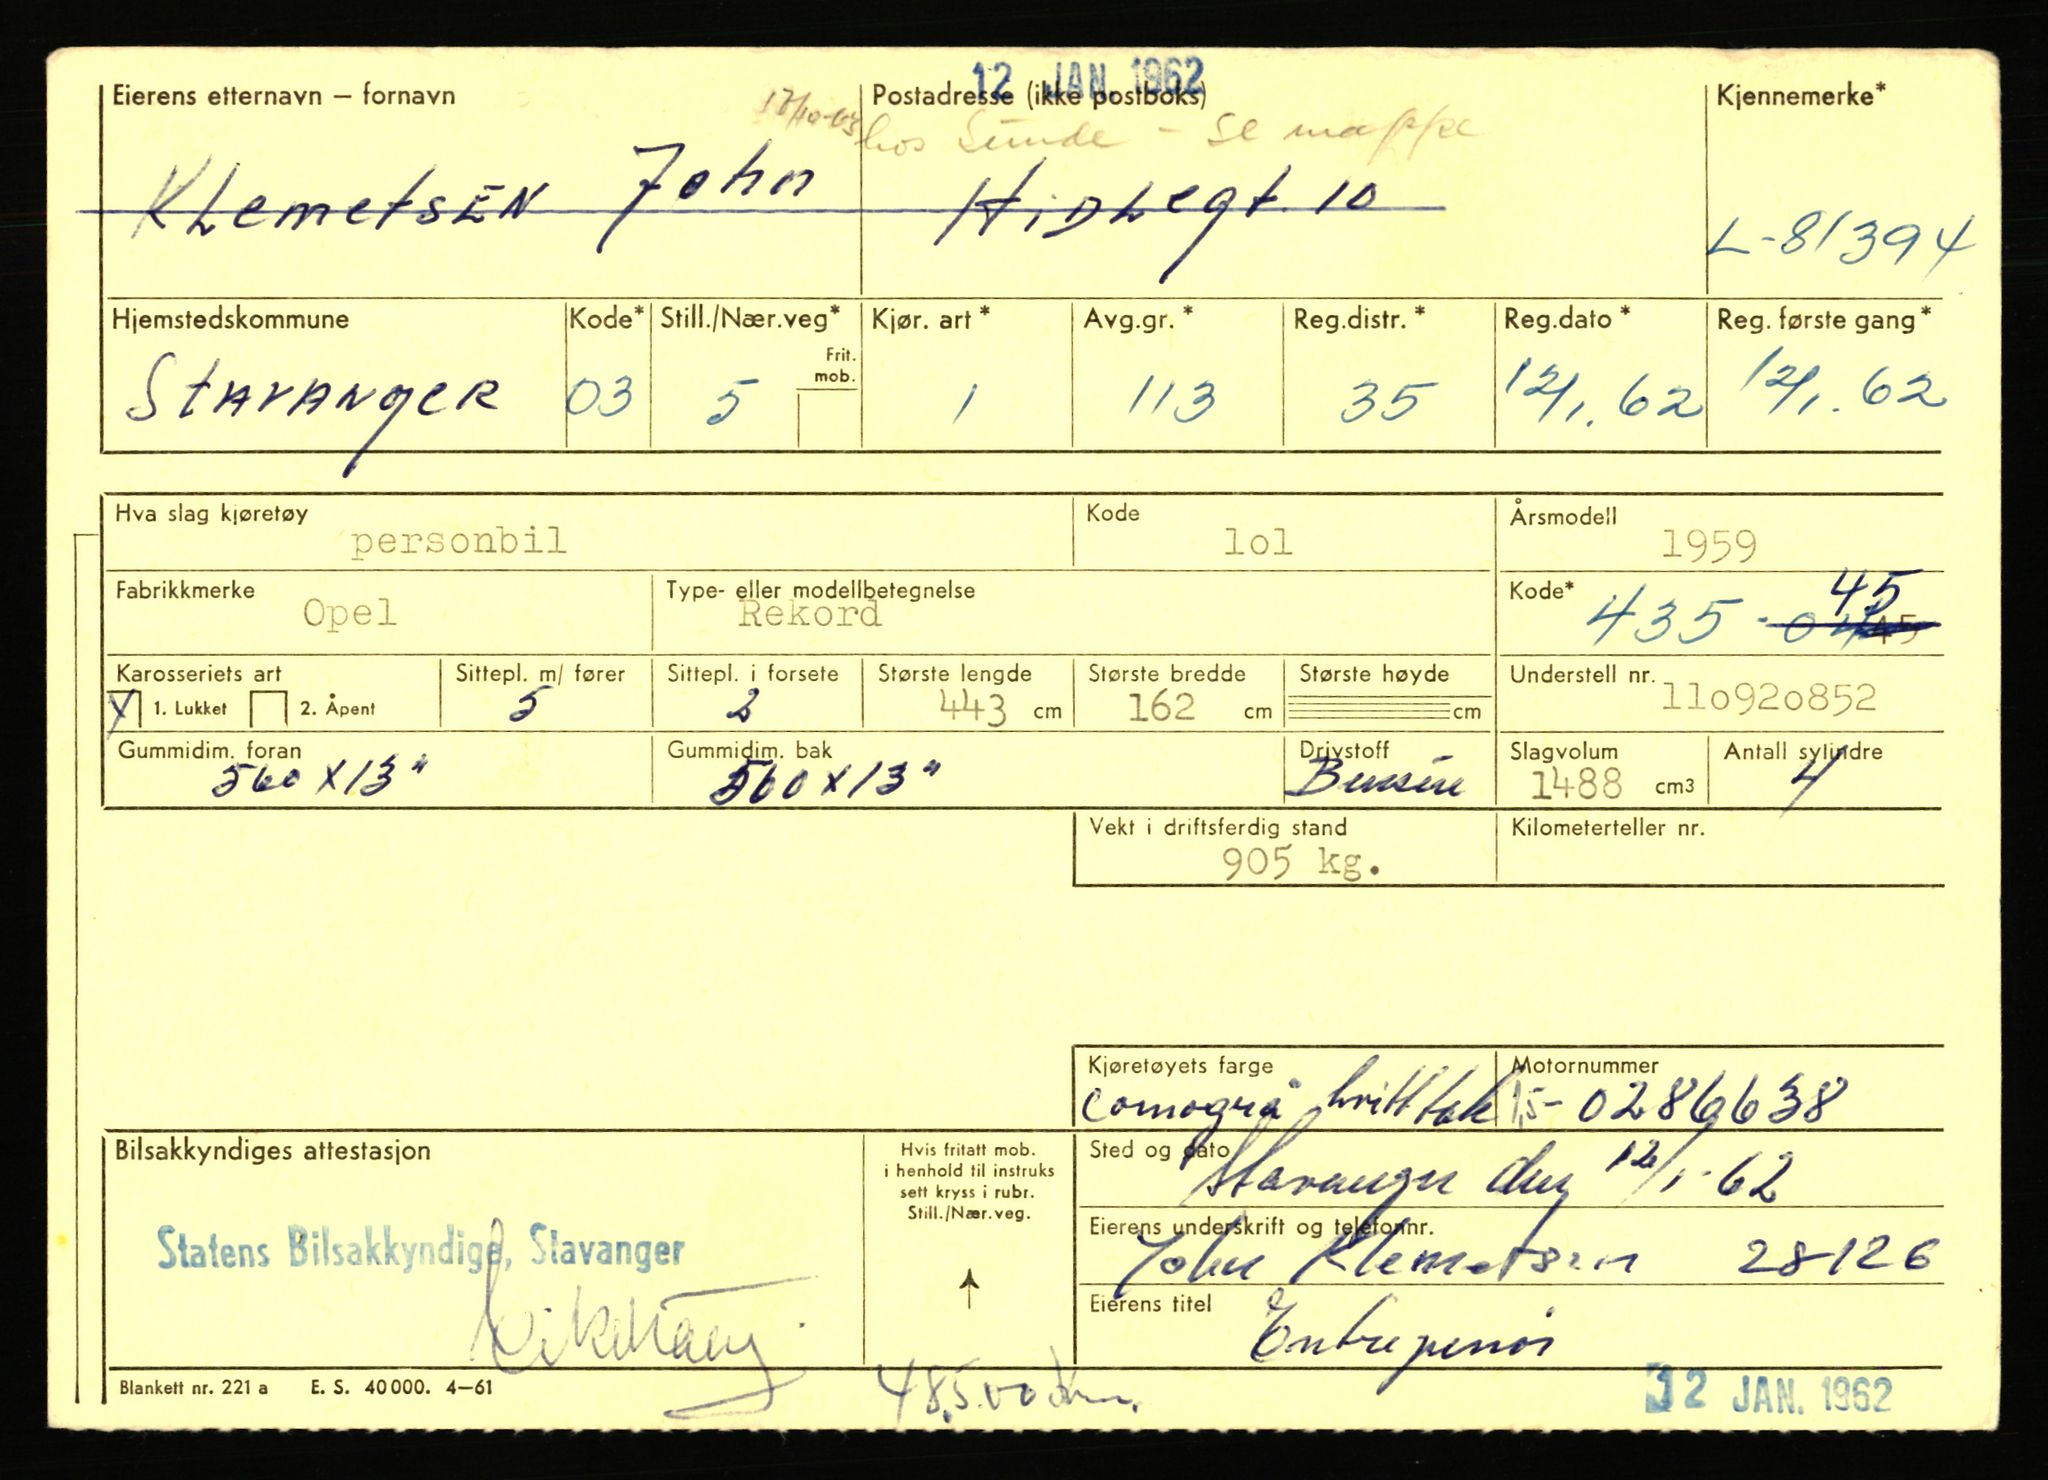 12 JAN. 1962
Eierens etternavn – fornavn Postadresse (ikke postboks) Kjennemerke*
17/10-63 hos Sunde - se mappe
KLemetsEN John HiDLegt. 10
L-81394
Hjemstedskommune Kode* Still./Nær.veg* Kjør. art * Avg.gr. * Reg.distr. * Reg.dato * Reg. første gang *
Frit. mob.
StAVANgeR 03 5 1 113 35 12/1. 62 12/1. 62
Hva slag kjøretøy Kode Årsmodell
personbil lol 1959
Fabrikkmerke Type- eller modellbetegnelse Kode*
Opel Rekord 435 - 45
Karosseriets art Sittepl. m/ fører Sittepl. i forsete Største lengde Største bredde Største høyde Understell nr.
X 1. Lukket 2. Åpent 5 2 443 cm 162 cm cm llo92o852
Gummidim. foran Gummidim. bak Drivstoff Slagvolum Antall sylindre
560 x 13" 560 x 13" Bensin 1488 cm3 4
Vekt i driftsferdig stand Kilometerteller nr.
905 kg.
Kjøretøyets farge Motornummer
comogrå hvitt tak 1,5- 0286638
Bilsakkyndiges attestasjon
Hvis fritatt mob.
i henhold til instruks
sett kryss i rubr.
Still./Nær.veg.
Sted og dato
Stavanger den 12/1-62
Eierens underskrift og telefonnr.
Statens Bilsakkyndige, Stavanger
John Klemetsen 28126
Eierens titel
Entrepenør
Blankett nr. 221 a E. S. 40 000. 4–61
48.500 km.
12 JAN. 1962